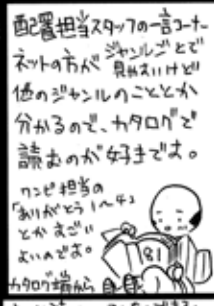 配置担当スタッフの一言コーナー
ネットの方が ジャンルごとで
見やすいけど
他のジャンルのこととか
分かるので、カタログで
読むのが好きでよ。
ワンピ担当の
「ありがとう1〜4」
とか すごい
よいのでよ。
81
カタログ端から